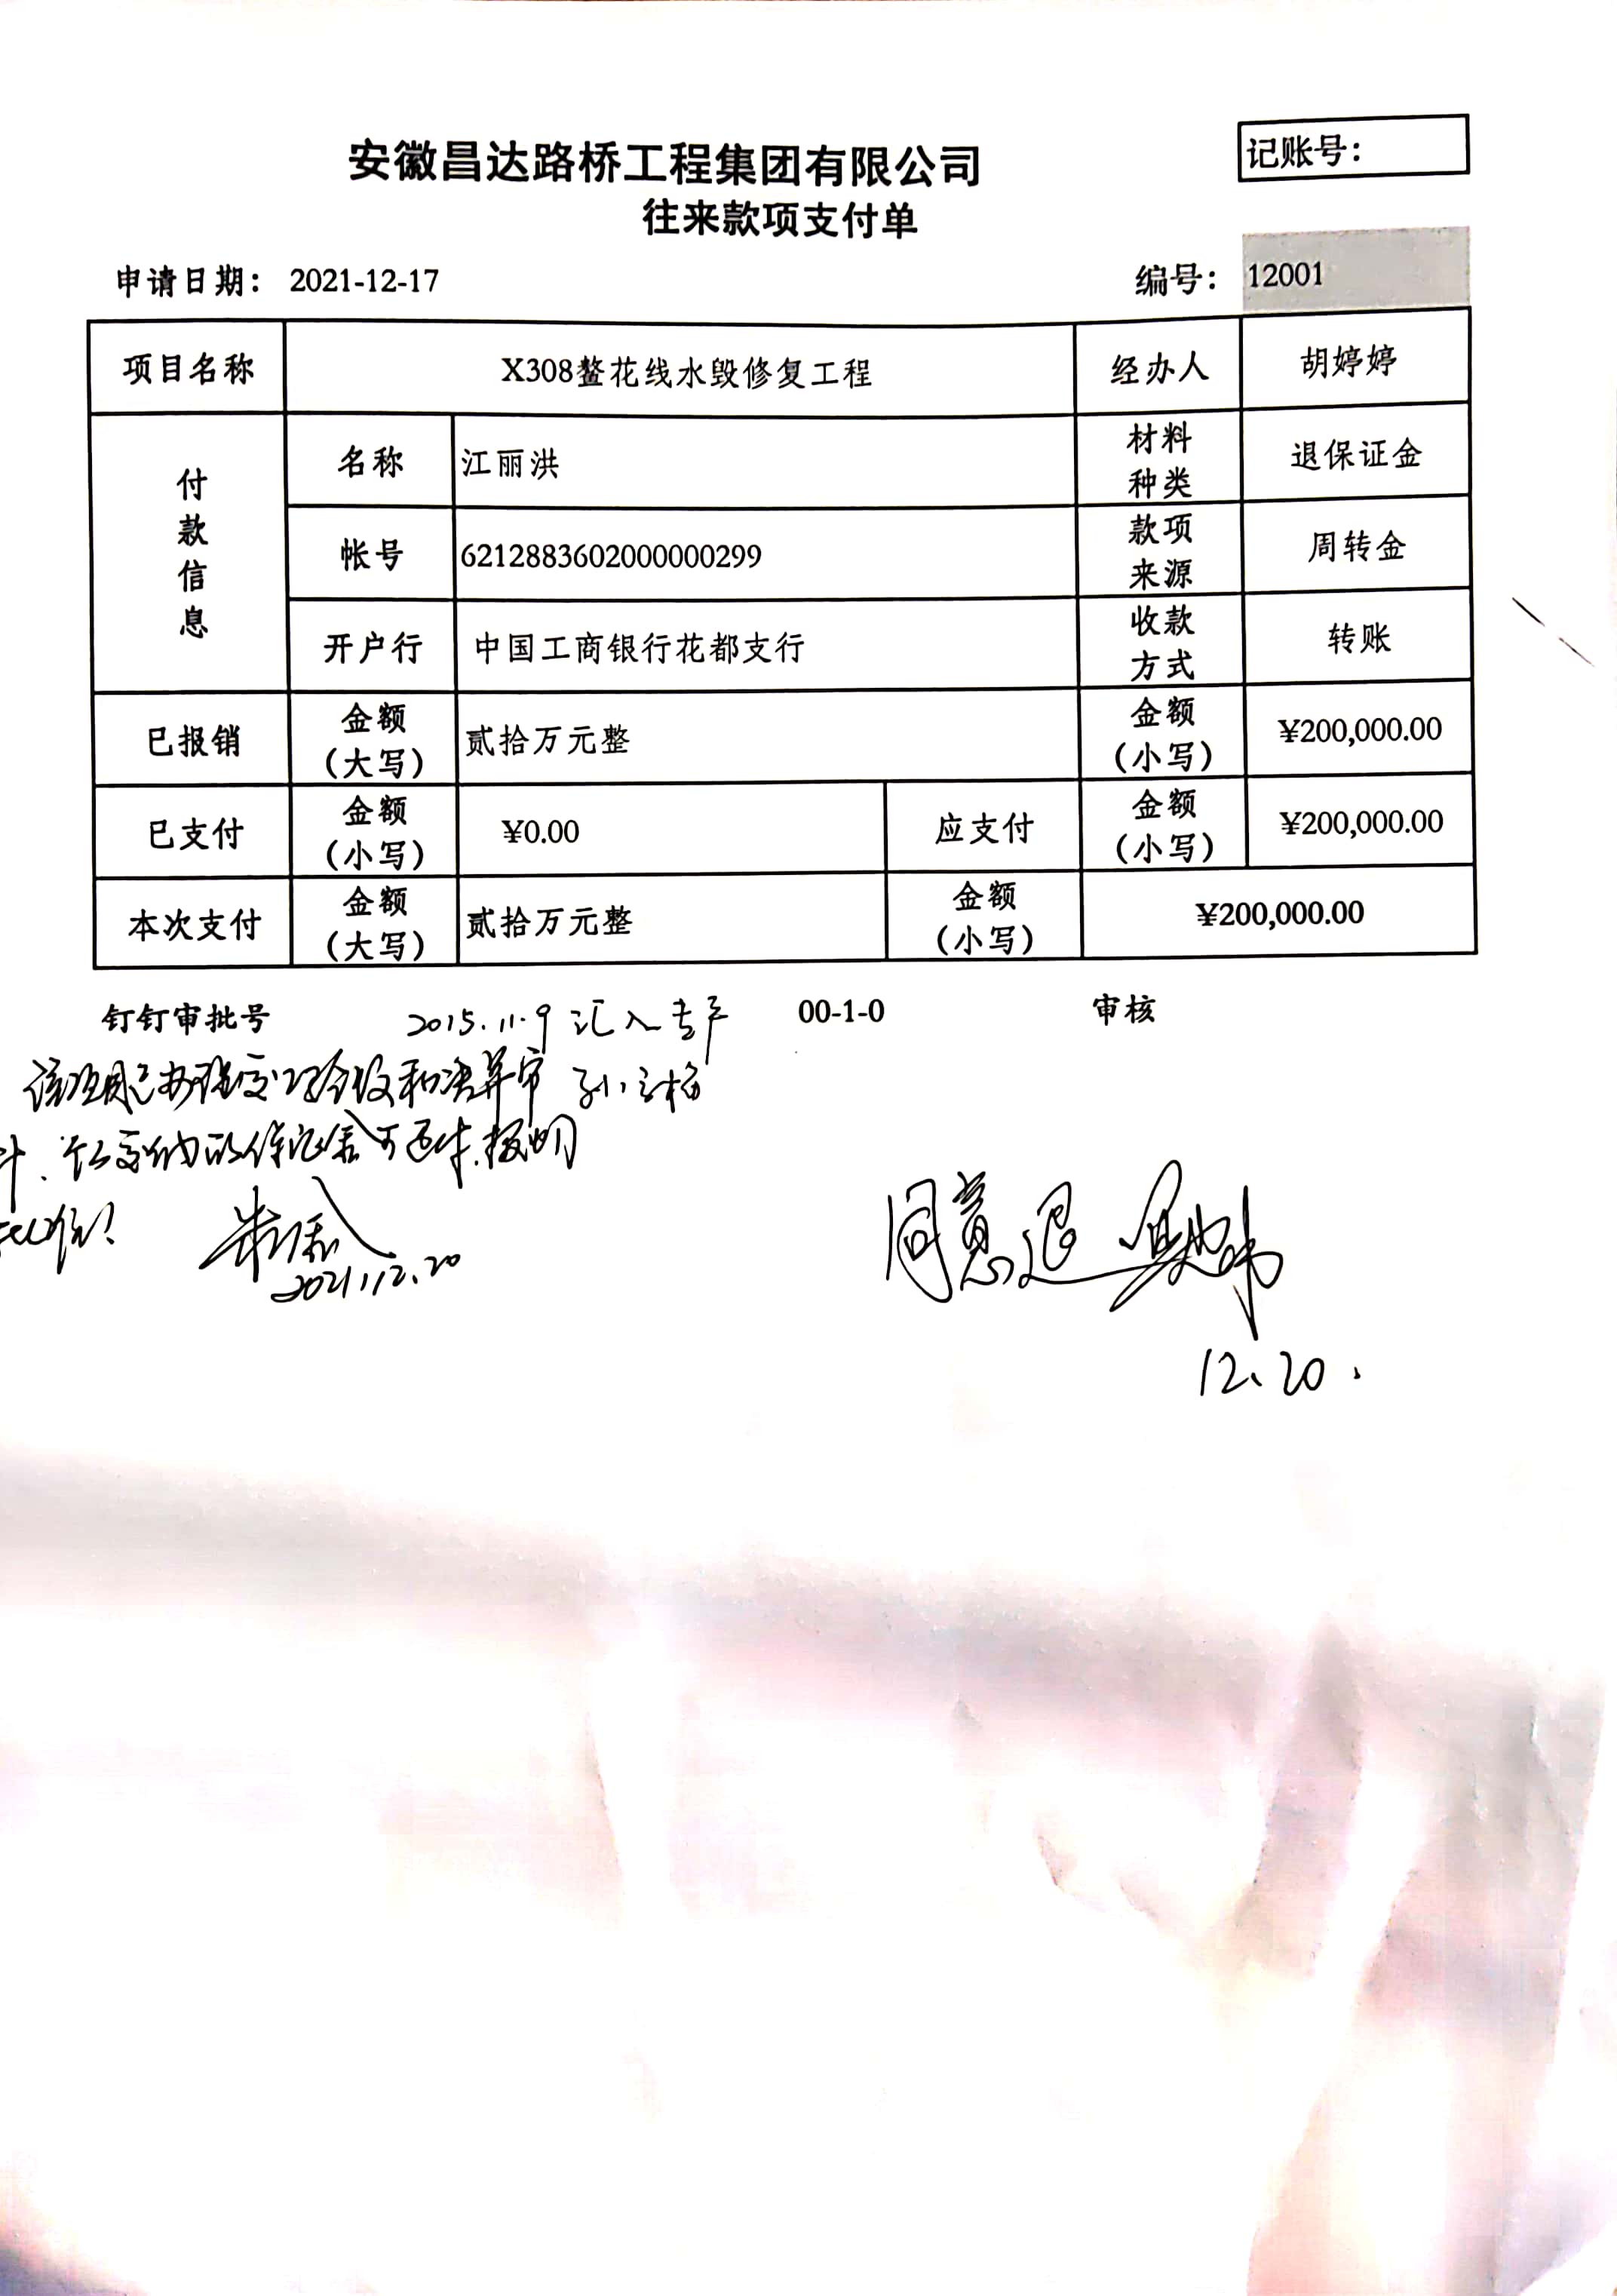 记账号：
安徽昌达路桥工程集团有限公司
往来款项支付单
申请日期： 2021-12-17 编号： 12001
项目名称 X308鳌花线水毁修复工程 经办人 胡婷婷
付款信息 名称 江丽洪 材料种类 退保证金
帐号 6212883602000000299 款项来源 周转金
开户行 中国工商银行花都支行 收款方式 转账
已报销 金额（大写） 贰拾万元整 金额（小写） ¥200,000.00
已支付 金额（小写） ¥0.00 应支付 金额（小写） ¥200,000.00
本次支付 金额（大写） 贰拾万元整 金额（小写） ¥200,000.00
钉钉审批号 2015.11.9 汇入 00-1-0 审核
该项目已办理交工验收和决算审
计、所交纳的保证金可退休
批准！
2021.12.20
同意退
12.20.